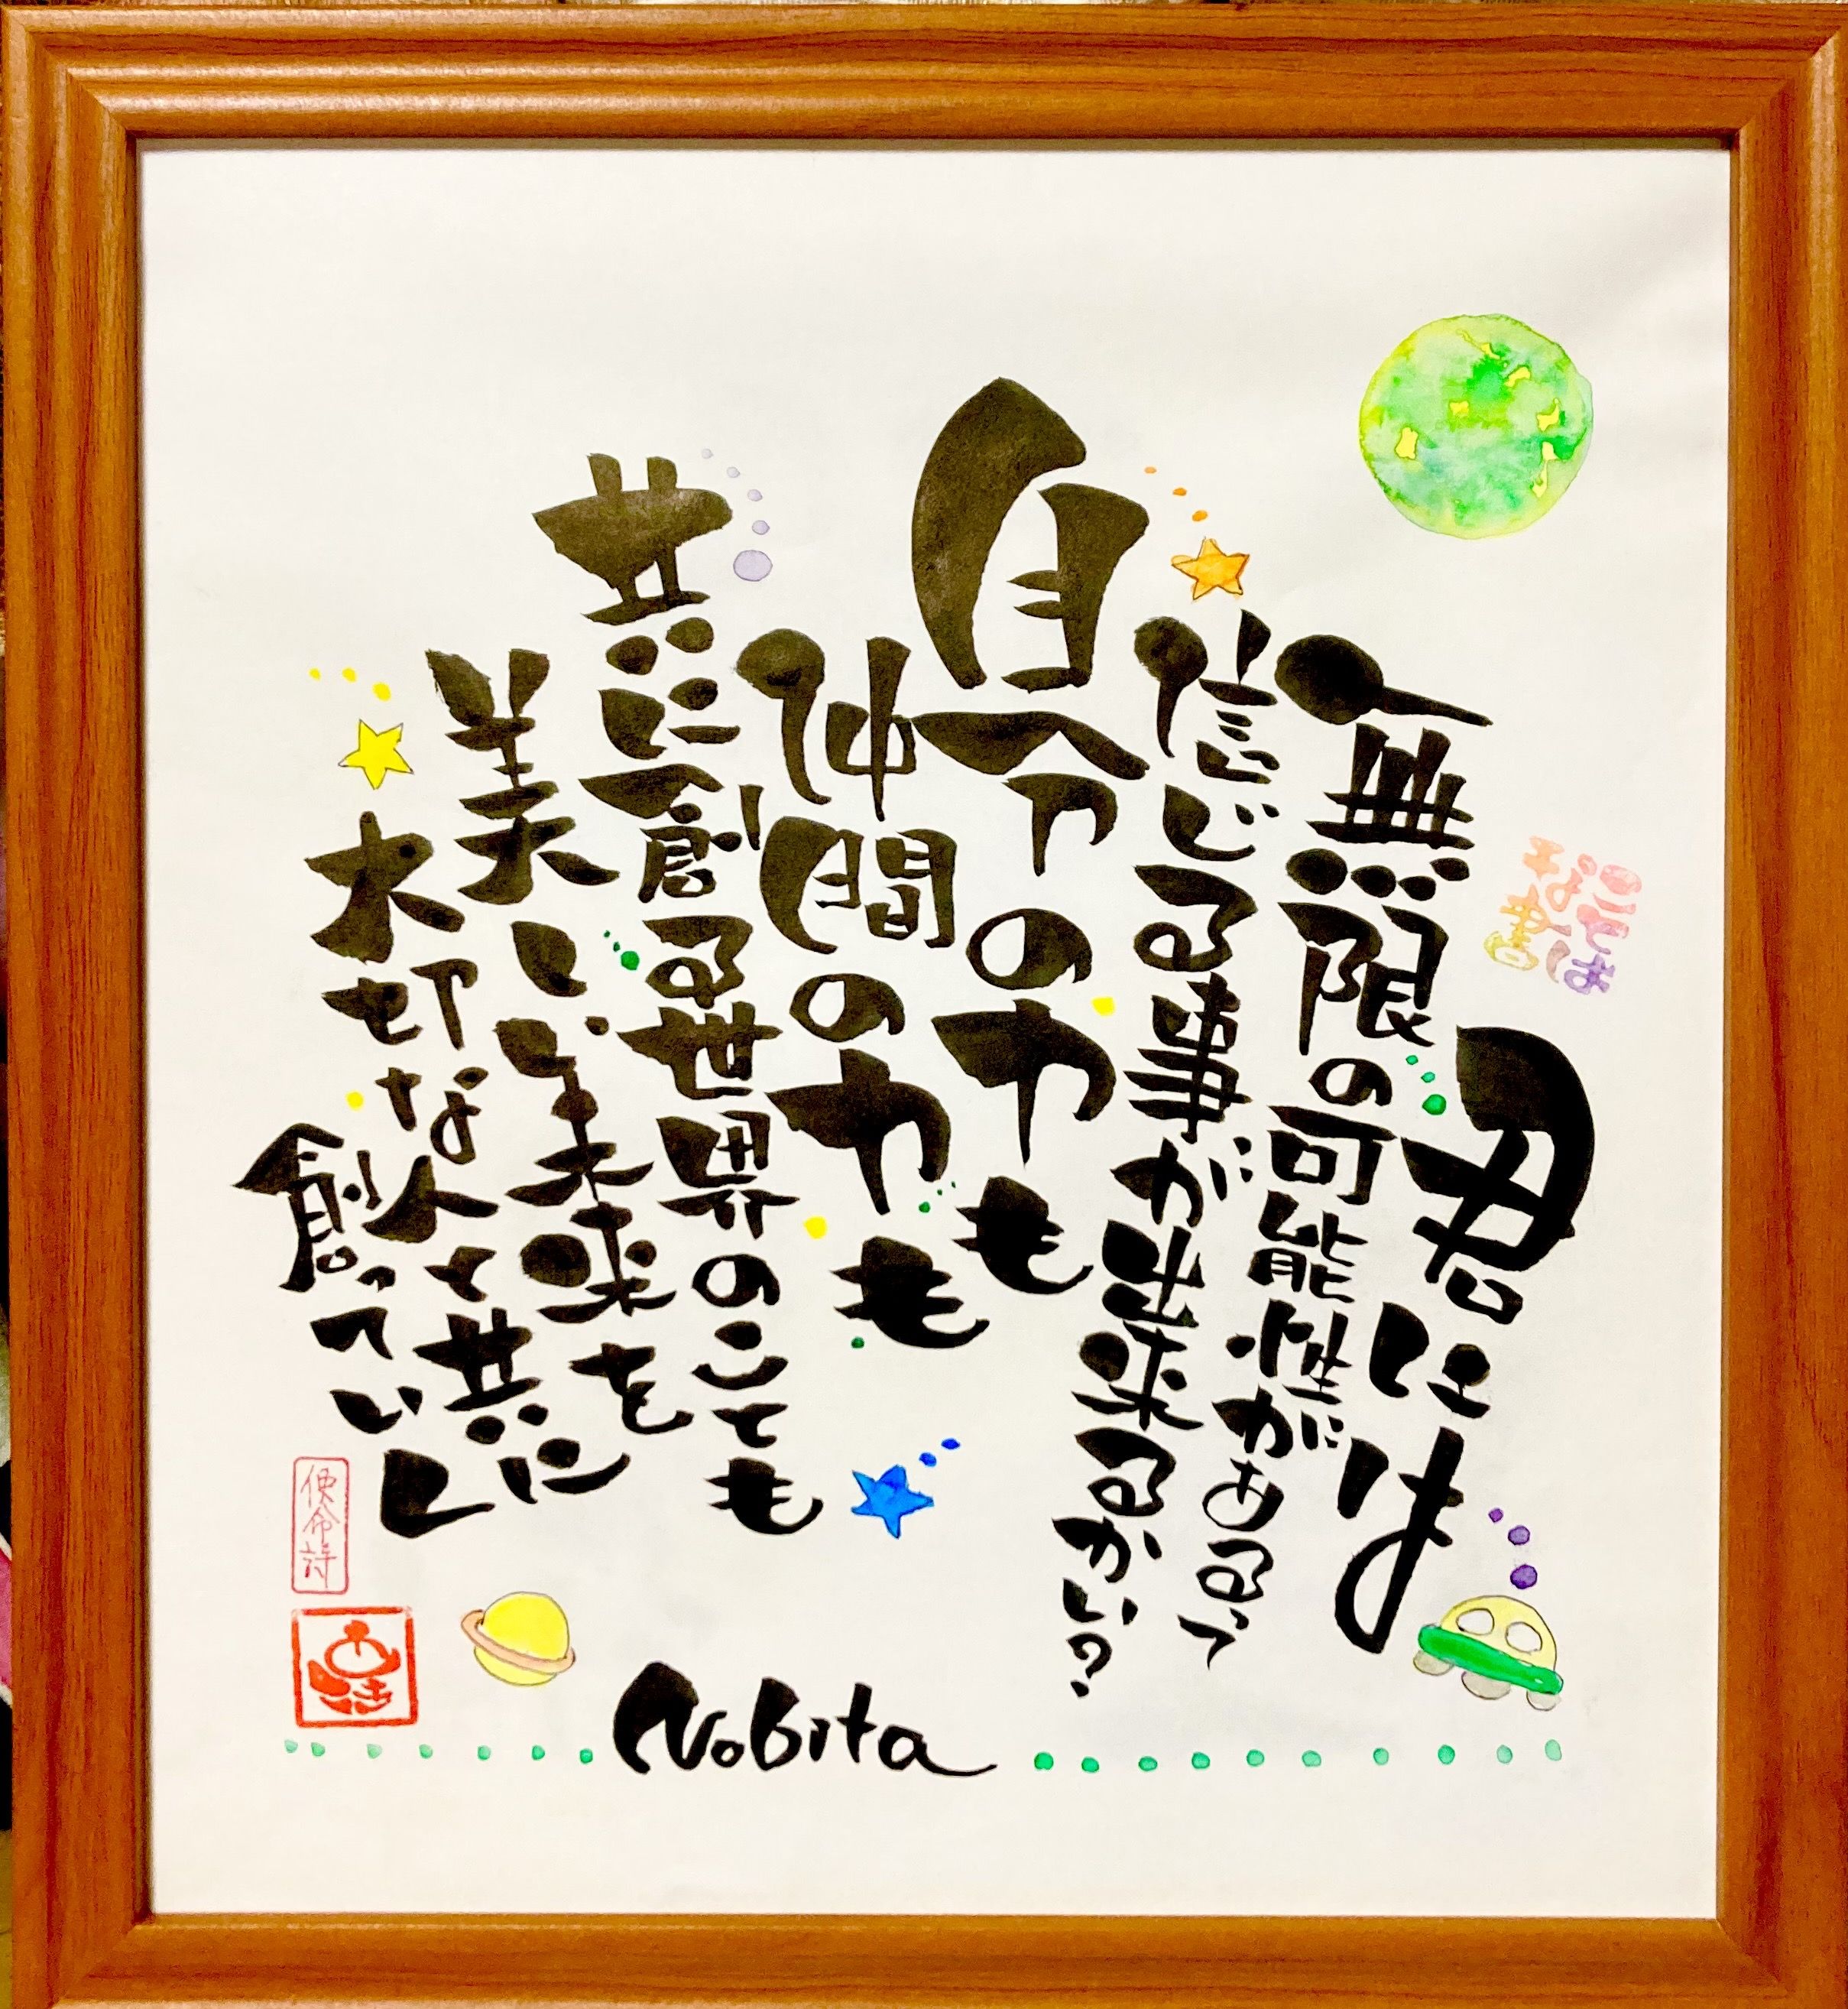 君には
無限の可能性があるって
信じる事が出来るかい？
自分の力も
仲間の力も
共に創る世界のことも
美しい未来を
大切な人と共に
創っていし
Nobita
使命詩